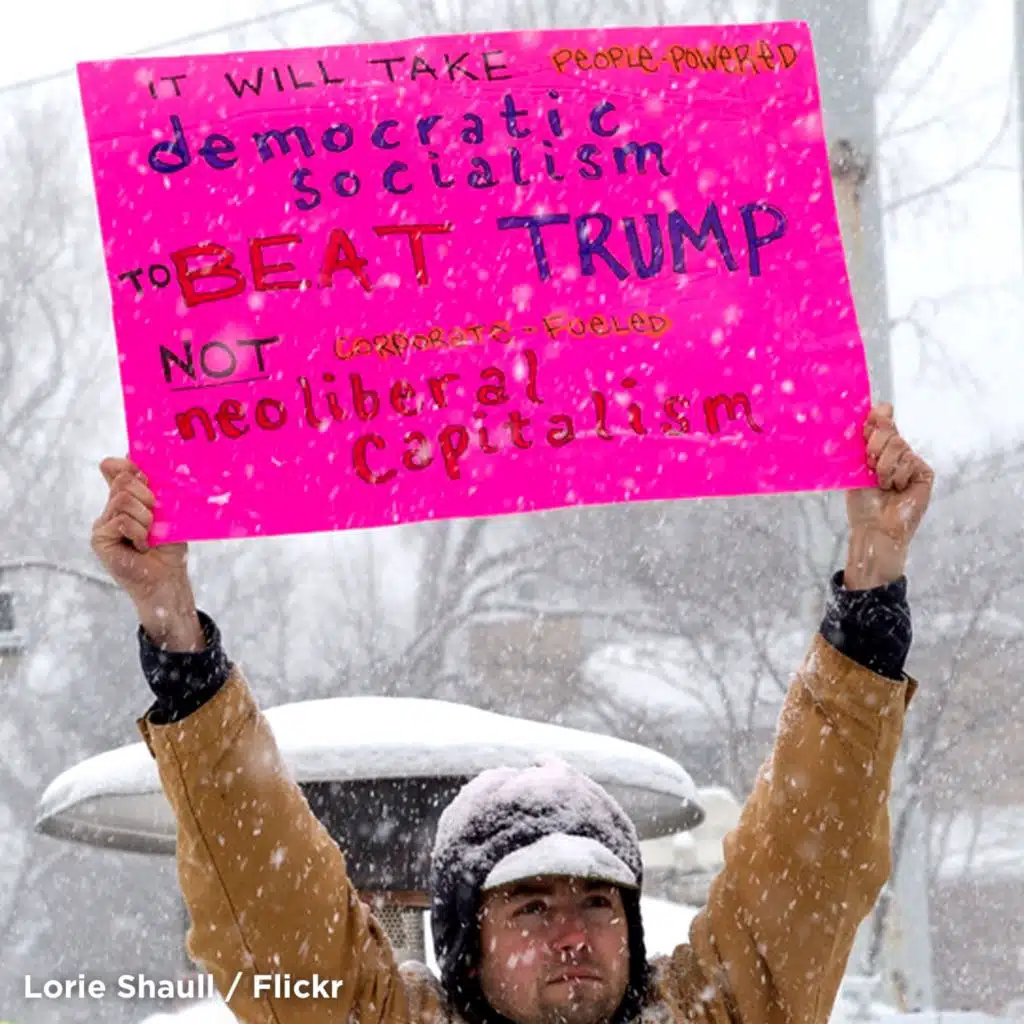 IT WILL TAKE PEOPLE-POWERED
democratic
socialism
TO BEAT TRUMP
NOT CORPORATE-FUELED
neoliberal
capitalism
Lorie Shaull / Flickr